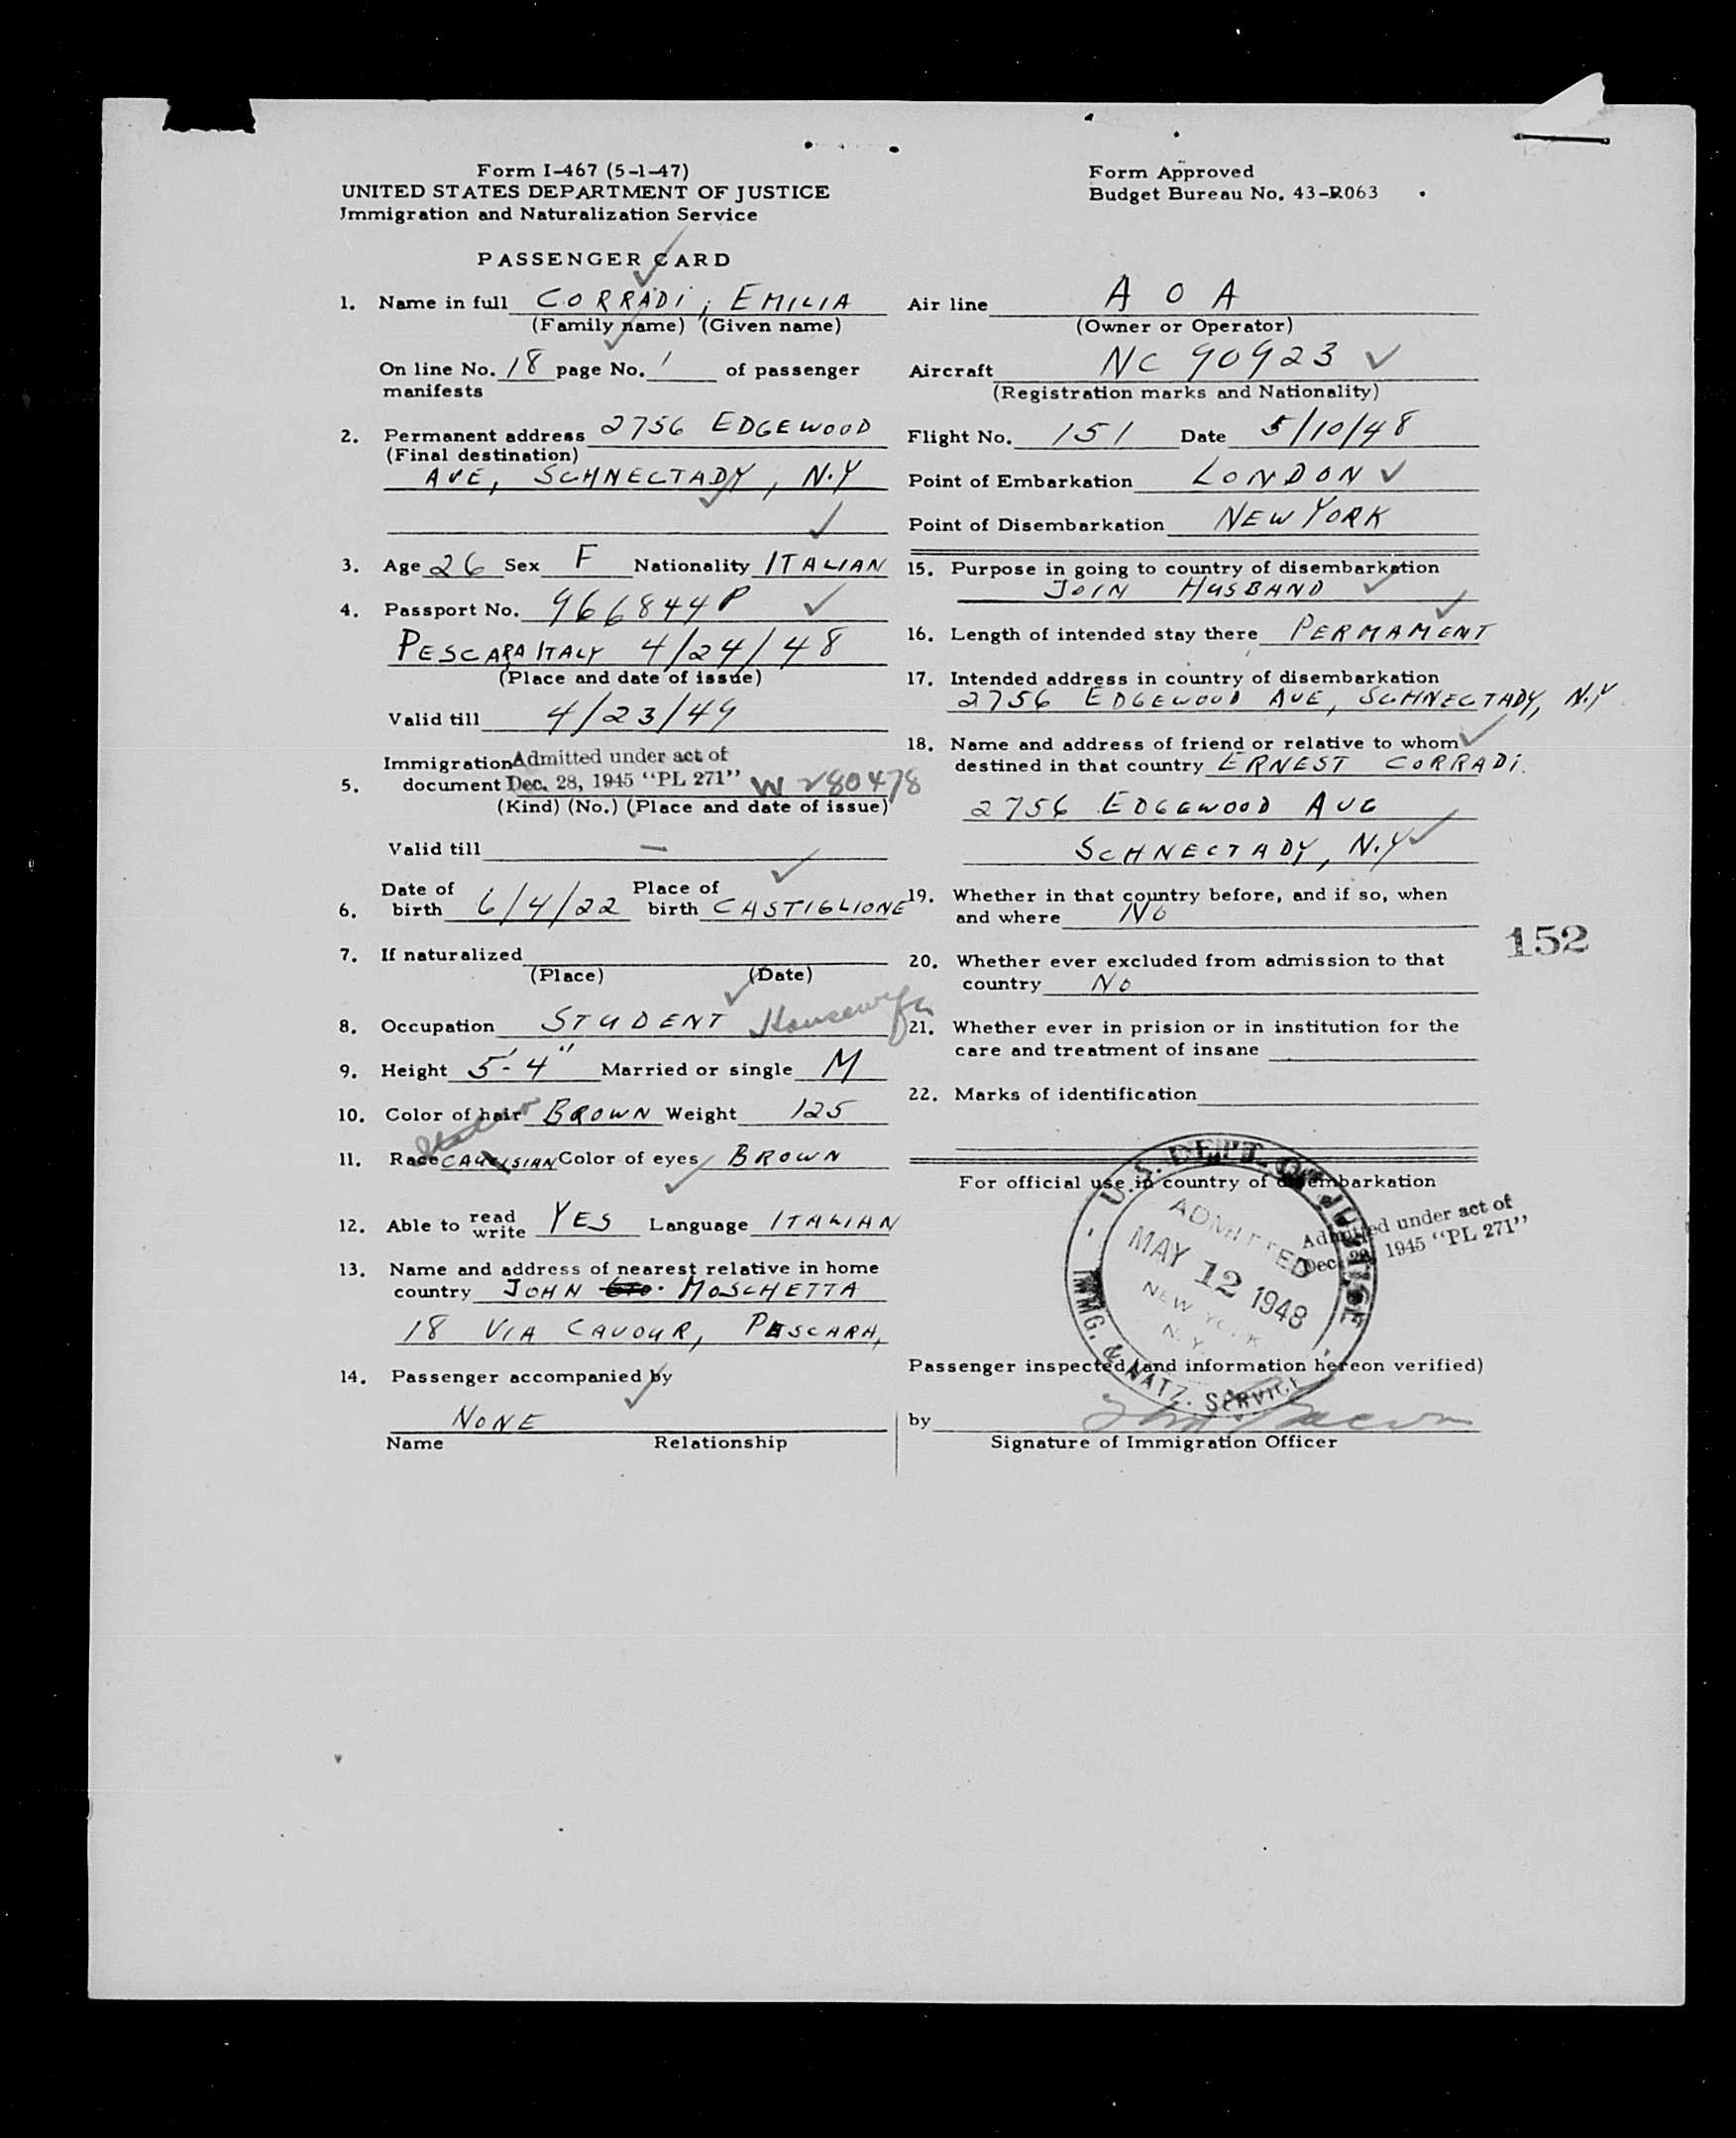 Form I-467 (5-1-47)
UNITED STATES DEPARTMENT OF JUSTICE
Immigration and Naturalization Service
Form Approved
Budget Bureau No. 43-R063
PASSENGER CARD
1. Name in full CORRADI, EMILIA
(Family name) (Given name)
On line No. 18 page No. 1 of passenger
manifests
2. Permanent address 2756 EDGEWOOD
(Final destination)
AVE, SCHNECTADY, N.Y
3. Age 26 Sex F Nationality ITALIAN
4. Passport No. 966844P
PESCARA ITALY 4/24/48
(Place and date of issue)
Valid till 4/23/49
Immigration Admitted under act of
5. document Dec. 28, 1945 "PL 271" W 280478
(Kind) (No.) (Place and date of issue)
Valid till —
6. Date of birth 6/4/22 Place of birth CASTIGLIONE
7. If naturalized
(Place) (Date)
8. Occupation STUDENT Housewife
9. Height 5'-4" Married or single M
10. Color of hair BROWN Weight 125
11. Race CAUCSIAN Color of eyes BROWN
12. Able to read write YES Language ITALIAN
13. Name and address of nearest relative in home
country JOHN MOSCHETTA
18 VIA CAVOUR, PESCARA,
14. Passenger accompanied by
NONE
Name Relationship
Air line A O A
(Owner or Operator)
Aircraft NC 90923
(Registration marks and Nationality)
Flight No. 151 Date 5/10/48
Point of Embarkation LONDON
Point of Disembarkation NEW YORK
15. Purpose in going to country of disembarkation
JOIN HUSBAND
16. Length of intended stay there PERMAMENT
17. Intended address in country of disembarkation
2756 EDGEWOOD AVE, SCHNECTADY, N.Y
18. Name and address of friend or relative to whom
destined in that country ERNEST CORRADI.
2756 EDGEWOOD AVE
SCHNECTADY, N.Y
19. Whether in that country before, and if so, when
and where NO
152
20. Whether ever excluded from admission to that
country NO
21. Whether ever in prision or in institution for the
care and treatment of insane
22. Marks of identification
For official use in country of disembarkation
U.S. DEPT. OF JUSTICE
ADMITTED
MAY 12 1948
NEW YORK
N. Y.
IMMG. & NATZ. SERVICE
Admitted under act of
Dec. 28, 1945 "PL 271"
Passenger inspected (and information hereon verified)
by
Signature of Immigration Officer